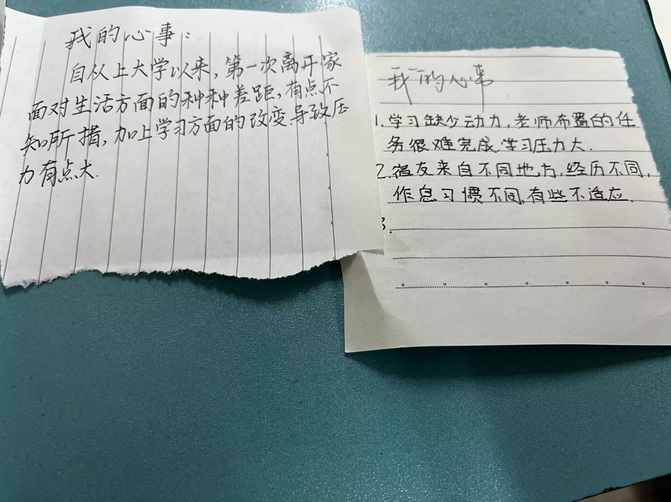 我的心事：
自从上大学以来，第一次离开家
面对生活方面的种种差距，有点不
知所措，加上学习方面的改变导致压
力有点大.
我的心事
1.学习缺少动力，老师布置的任
务很难完成，学习压力大.
2.宿友来自不同地方，经历不同，
作息习惯不同，有些不适应.
3.